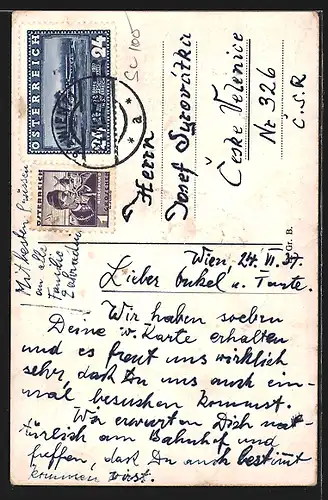 ÖSTERREICH
24
24
WIEN
* a *
ÖSTERREICH
1
SC 100
Herrn
Josef Syrovátka
České Velenice
Nr 326
Č.S.R
Gr. B.
Mit besten Grüssen
an alle
Familie
Wien, 24. VI. 37.
Lieber Onkel u. Tante.
Wir haben soeben
Deine w. Karte erhalten
und es freut uns wirklich
sehr, dass Du uns auch ein-
mal besuchen kommst.
Wir erwarten Dich na-
türlich am Bahnhof und
hoffen, dass Du auch bestimmt
kommen wirst.